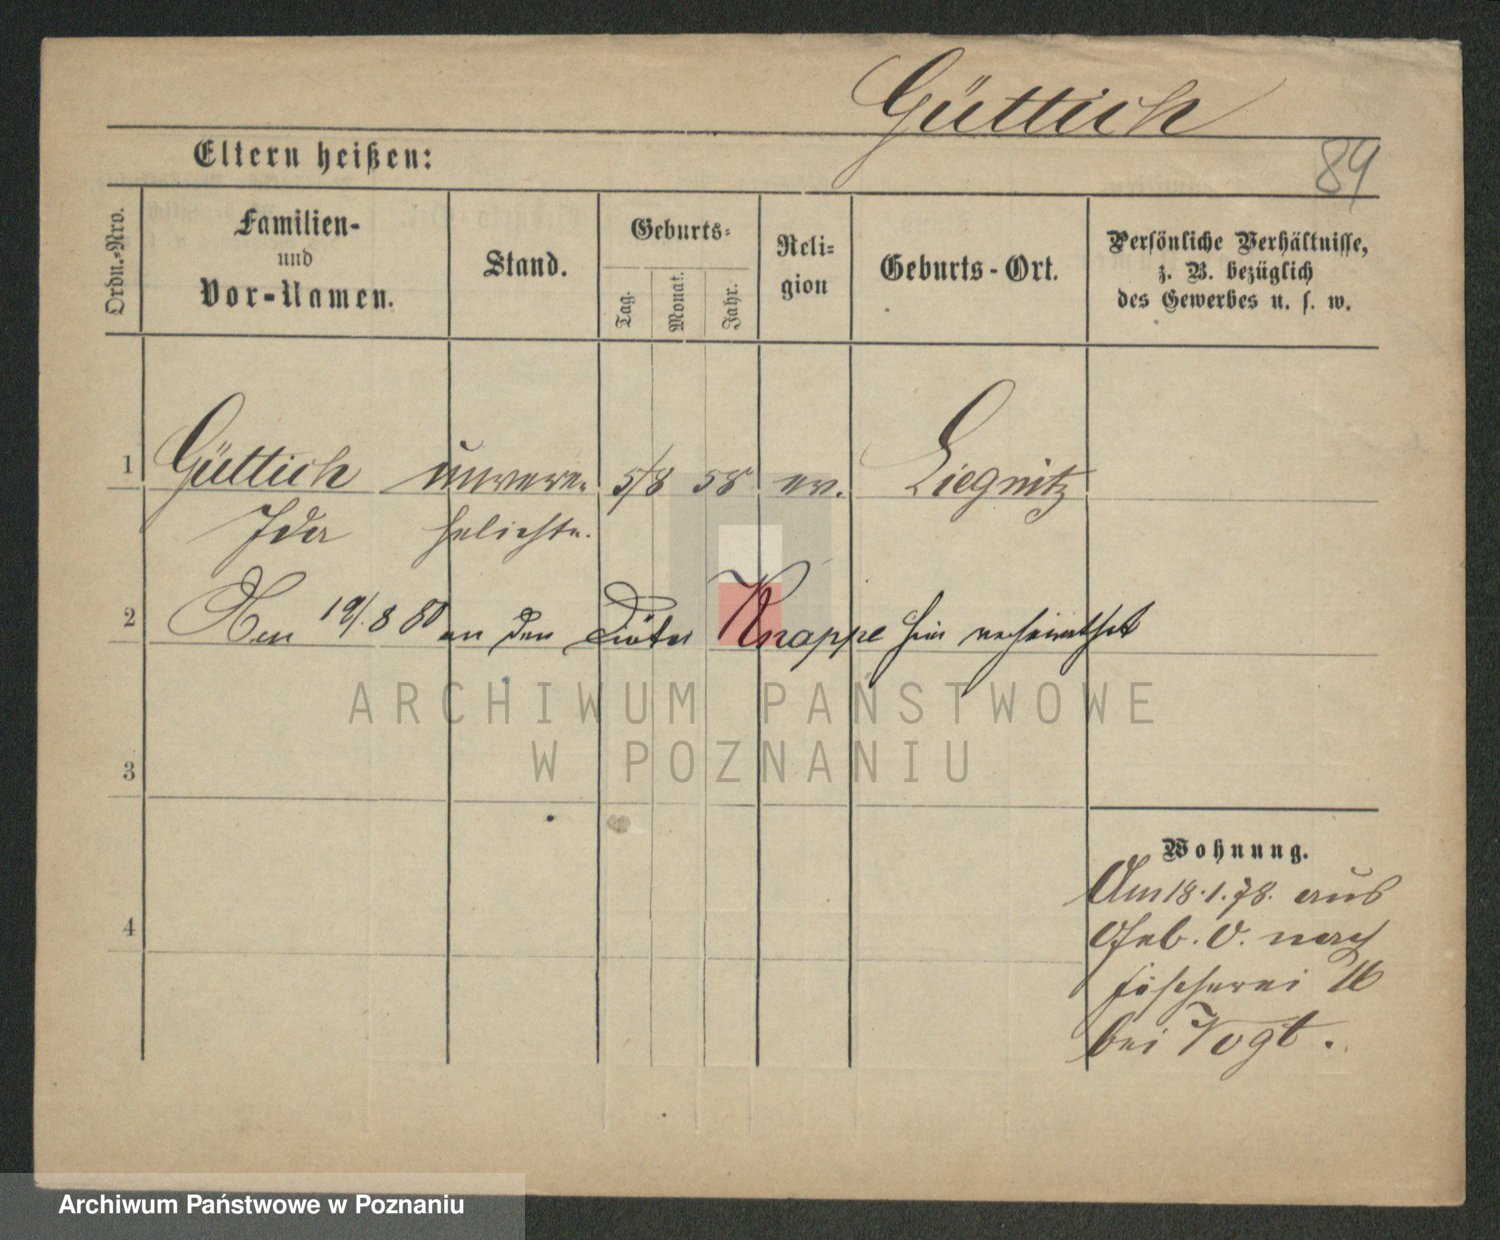 Güttich
89
Eltern heißen:
Ordn.-Nro.
Familien-
und
Vor-Namen.
Stand.
Geburts-
Tag.
Monat.
Jahr.
Reli-
gion
Geburts-Ort.
Persönliche Verhältnisse,
z. B. bezüglich
des Gewerbes u. s. w.
1 Güttich unvere- 5/8 58 ev. Liegnitz
Ida helichte.
2 Den 19/8 80 an den Diätar Knappe hier verheirathet
ARCHIWUM PAŃSTWOWE
W POZNANIU
3
Wohnung.
Am 18.1.78. aus
Geb. O. nach
Fischerei 16
bei Vogt.
4
Archiwum Państwowe w Poznaniu